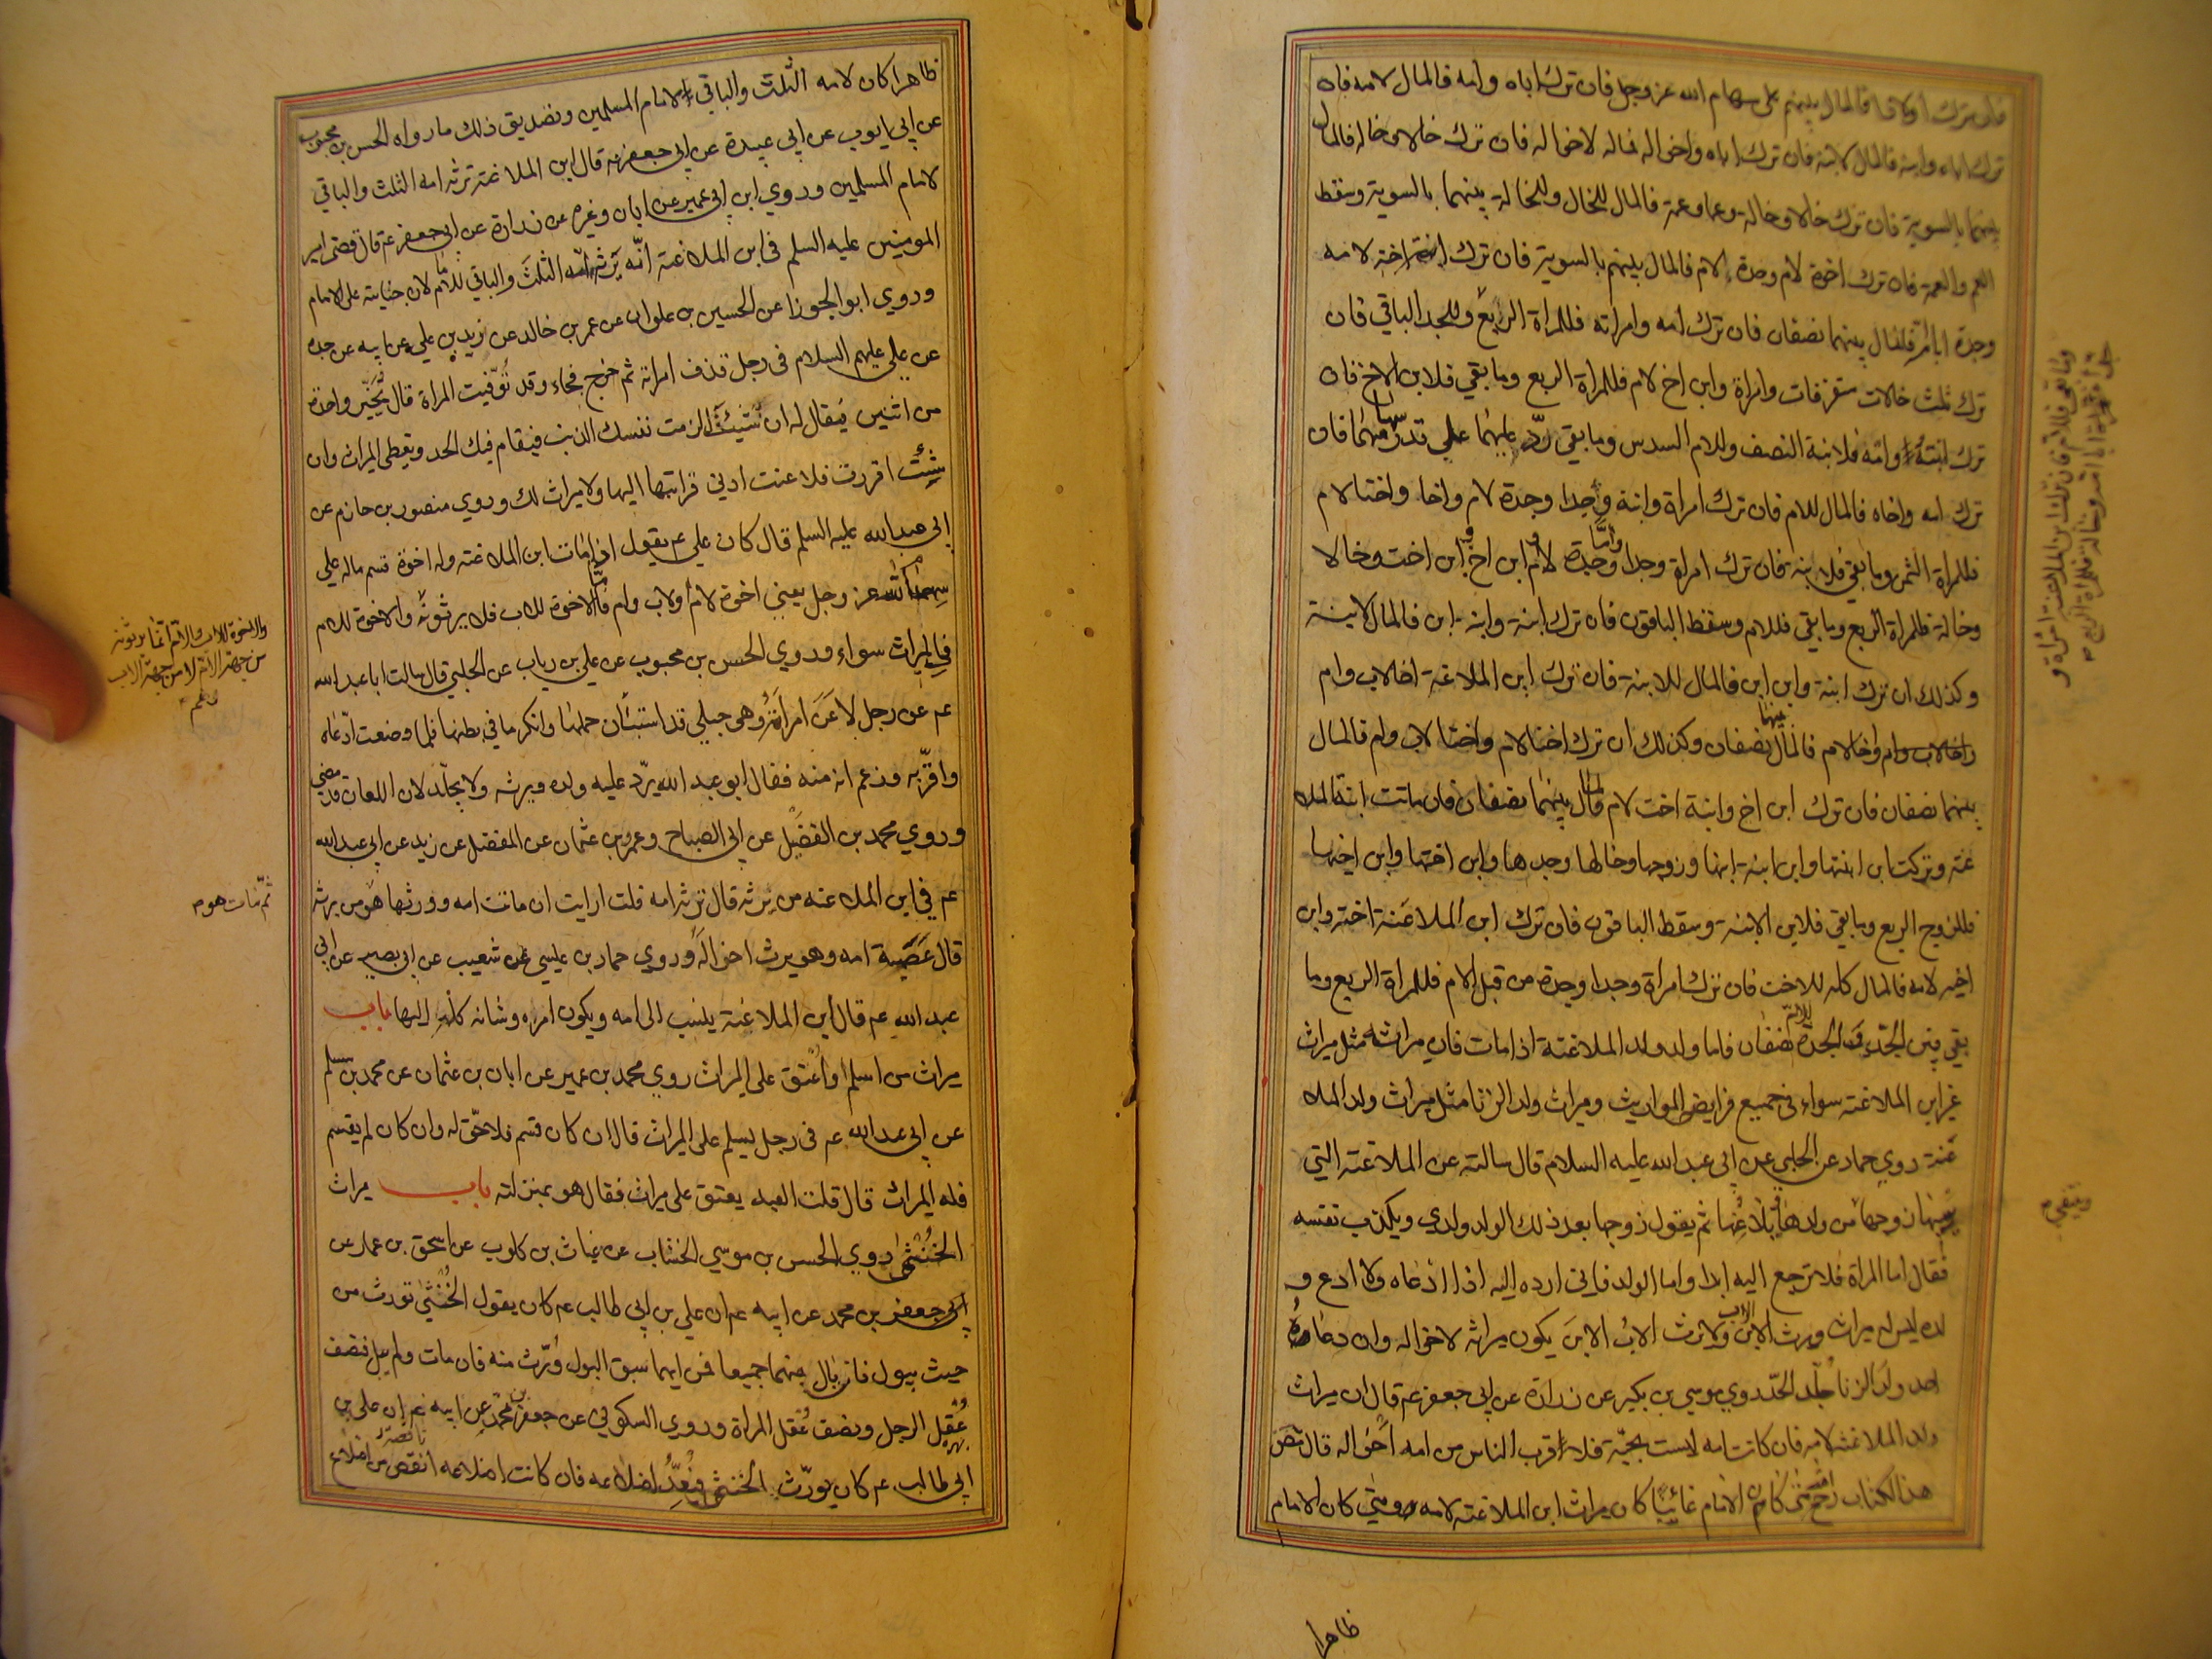 فان ترك اولادا فالمال بينهم على سهام الله عز وجل فان ترك اباه وامه فالمال لامه فان
ترك اباه وابنه فالمال لابنه فان ترك اباه واخواله فماله لاخواله فان ترك خالا وخاله فالمال
بينهما بالسوية فان ترك خالا وخالة وعما وعمة فالمال للخال وللخالة بينهما بالسوية وسقط
العم والعمة فان ترك اخوة لام وجدة لام فالمال بينهم بالسوية فان ترك اخته لامه
وجدة ابا امه فالمال بينهما نصفان فان ترك امه وامراته فللمراة الربع وللجد الباقي فان
ترك ثلث خالات متفرقات وامراة وابن اخ لام فللمراة الربع وما بقي فلابن الاخ فان
ترك ابنته وامه فلابنة النصف وللام السدس وما بقي رد عليهما على قدر سهامهما فان
ترك امه واخاه فالمال للام فان ترك امراة وابنة وجدا وجدة لام واخا واختا لام
فللمراة الثمن وما بقي فلابنته فان ترك امراة وجدا وجدة لام وابن اخ وابن اخت وخالا
وخالة فللمراة الربع وما بقي فللام وسقط الباقون فان ترك ابنة وابنة ابن فالمال لابنة
وكذلك ان ترك ابنة وابن ابن فالمال للابنة فان ترك ابن الملاعنة اخا لاب وام
واخا لام فالمال بينهما نصفان وكذلك ان ترك اختا لام واختا لاب وام فالمال
بينهما نصفان فان ترك ابن اخ وابنة اخت لام فالمال بينهما نصفان فان ماتت ابنة الملا
عنة وتركت ابن ابنتها وابن ابنة ابنها وزوجها وخالها وجدها وابن اختها وابن اخيها
فللزوج الربع وما بقي فلابن الابنة وسقط الباقون فان ترك ابن الملاعنة اخته وابن
اخيه لامه فالمال كله للاخت فان ترك امراة وجدا وجدة من قبل الام فللمراة الربع وما
بقي بين الجد والجدة للام نصفان فاما ولد ولد الملاعنة اذا مات فان ميراثه مثل ميراث
غير ابن الملاعنة سواء في جميع فرايض المواريث وميراث ولد الزنا مثل ميراث ولد الملا
عنة روي حماد عن الحلبي عن ابي عبد الله عليه السلام قال سالته عن الملاعنة التي
يرميها زوجها من ولدها فيلاعنها ثم يقول زوجها بعد ذلك الولد ولدي ويكذب نفسه
فقال اما المراة فلا ترجع اليه ابدا واما الولد فاني ارده اليه اذا ادعاه ولا ادع و
لده ليس له ميراث ويرث الابن الاب ولا يرث الاب الابن يكون ميراثه لاخواله وان دعاه
احد ولد الزنا جلد الحد وروي موسي بن بكير عن زرارة عن ابي جعفر عم قال ان ميراث
ولد الملاعنة لامه فان كانت امه ليست بحية فلا اقرب الناس من امه اخواله قال
هذا الكتاب متى كان الامام غائبا كان ميراث ابن الملاعنة لامه ومتى كان الامام
ظاهرا
ظاهرا كان لامه الثلث والباقي لامام المسلمين وتصديق ذلك ما رواه الحسن بن محبوب
عن ابي ايوب عن ابي عبيدة عن ابي جعفر عم قال ابن الملاعنة ترثه امه الثلث والباقي
لامام المسلمين وروي ابن ابي عمير عن ابان وغيره عن زرارة عن ابي جعفر عم قال قضى امير
المومنين عليه السلم في ابن الملاعنة انه يرثه امه الثلث والباقي للامام لان جنايته على الامام
وروي ابو الجوزا عن الحسين بن علوان عن عمر بن خالد عن زيد بن علي عن ابيه عن جده
عن علي عليهم السلام في رجل قذف امراته ثم خرج فجاء وقد توفيت المراة قال يخير واحدة
من اثنين فيقال له ان شئت الزمت نفسك الذنب فيقام فيك الحد وتعطى الميراث وان
شئت اقررت فلاعنت ادنى قرابتها اليها ولا ميراث لك وروي منصور بن حازم عن
ابي عبد الله عليه السلم قال كان علي عم يقول اذا مات ابن الملاعنة وله اخوة قسم ماله على
سهام الله عز وجل يعني اخوة لام او لاب وام فاما الاخوة للاب فلا يرثونه والاخوة للام
والاخوة للاب والام انما يرثونه
من جهة الام لا من جهة الاب
في الميراث سواء وروي الحسن بن محبوب عن علي بن رياب عن الحلبي قال سالت ابا عبد الله
عم عن رجل لاعن امراته وهى حبلى قد استبان حملها وانكر ما في بطنها فلما وضعت ادعاه
واقر به وزعم انه منه فقال ابو عبد الله يرد عليه ولده ويرثه ولا يجلد لان اللعان قد مضى
وروي محمد بن الفضيل عن ابي الصباح وعمرو بن عثمان عن المفضل عن زيد عن ابي عبد الله
عم في ابن الملاعنه من يرثه قال ترثه امه قلت ارايت ان ماتت امه وورثها هو من يرثه
ثم مات هو
قال عصبة امه وهو يرث اخواله وروي حماد بن عليسى عن شعيب عن ابي بصير عن ابي
عبد الله عم قال ابن الملاعنة ينسب الى امه ويكون امره وشانه كله اليها باب
ميراث من اسلم او اعتق على الميراث روي محمد بن عمير عن ابان بن عثمان عن محمد بن مسلم
عن ابي عبد الله عم في رجل يسلم على الميراث قال ان كان قسم فلا حق له وان كان لم يقسم
فله الميراث قال قلت العبد يعتق على ميراث فقال هو بمنزلته باب ميراث
الخنثى روي الحسن بن موسي الخشاب عن غياث بن كلوب عن اسحق بن عمار عن
جعفر بن محمد عن ابيه عم ان علي بن ابي طالب عم كان يقول الخنثى تورث من
حيث يبول فان بال منهما جميعا فمن ايهما سبق البول ورث منه فان مات ولم يبل فنصف
عقل الرجل ونصف عقل المراة وروي السكوني عن جعفر بن محمد عن ابيه عم ان علي بن
ابي طالب عم كان يورث الخنثى فيعد اضلاعه فان كانت اضلاعه انقص من اضلاع